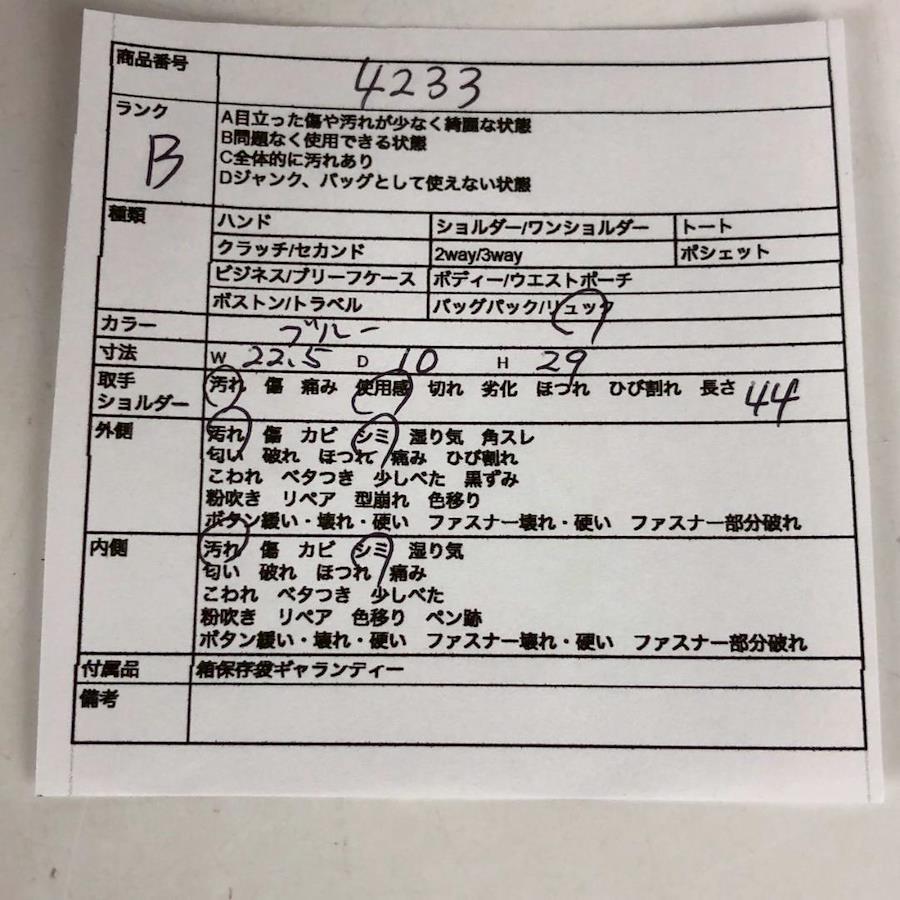 商品番号 4233
ランク B
A目立った傷や汚れが少なく綺麗な状態
B問題なく使用できる状態
C全体的に汚れあり
Dジャンク、バッグとして使えない状態
種類 ハンド ショルダー/ワンショルダー トート
クラッチ/セカンド 2way/3way ポシェット
ビジネス/ブリーフケース ボディー/ウエストポーチ
ボストン/トラベル バッグパック/リュック
カラー ブルー
寸法 W 22.5 D 10 H 29
取手 汚れ 傷 痛み 使用感 切れ 劣化 ほつれ ひび割れ 長さ 44
ショルダー
外側 汚れ 傷 カビ シミ 湿り気 角スレ
匂い 破れ ほつれ 痛み ひび割れ
こわれ ベタつき 少しべた 黒ずみ
粉吹き リペア 型崩れ 色移り
ボタン緩い・壊れ・硬い ファスナー壊れ・硬い ファスナー部分破れ
内側 汚れ 傷 カビ シミ 湿り気
匂い 破れ ほつれ 痛み
こわれ ベタつき 少しべた
粉吹き リペア 色移り ペン跡
ボタン緩い・壊れ・硬い ファスナー壊れ・硬い ファスナー部分破れ
付属品 箱保存袋ギャランティー
備考